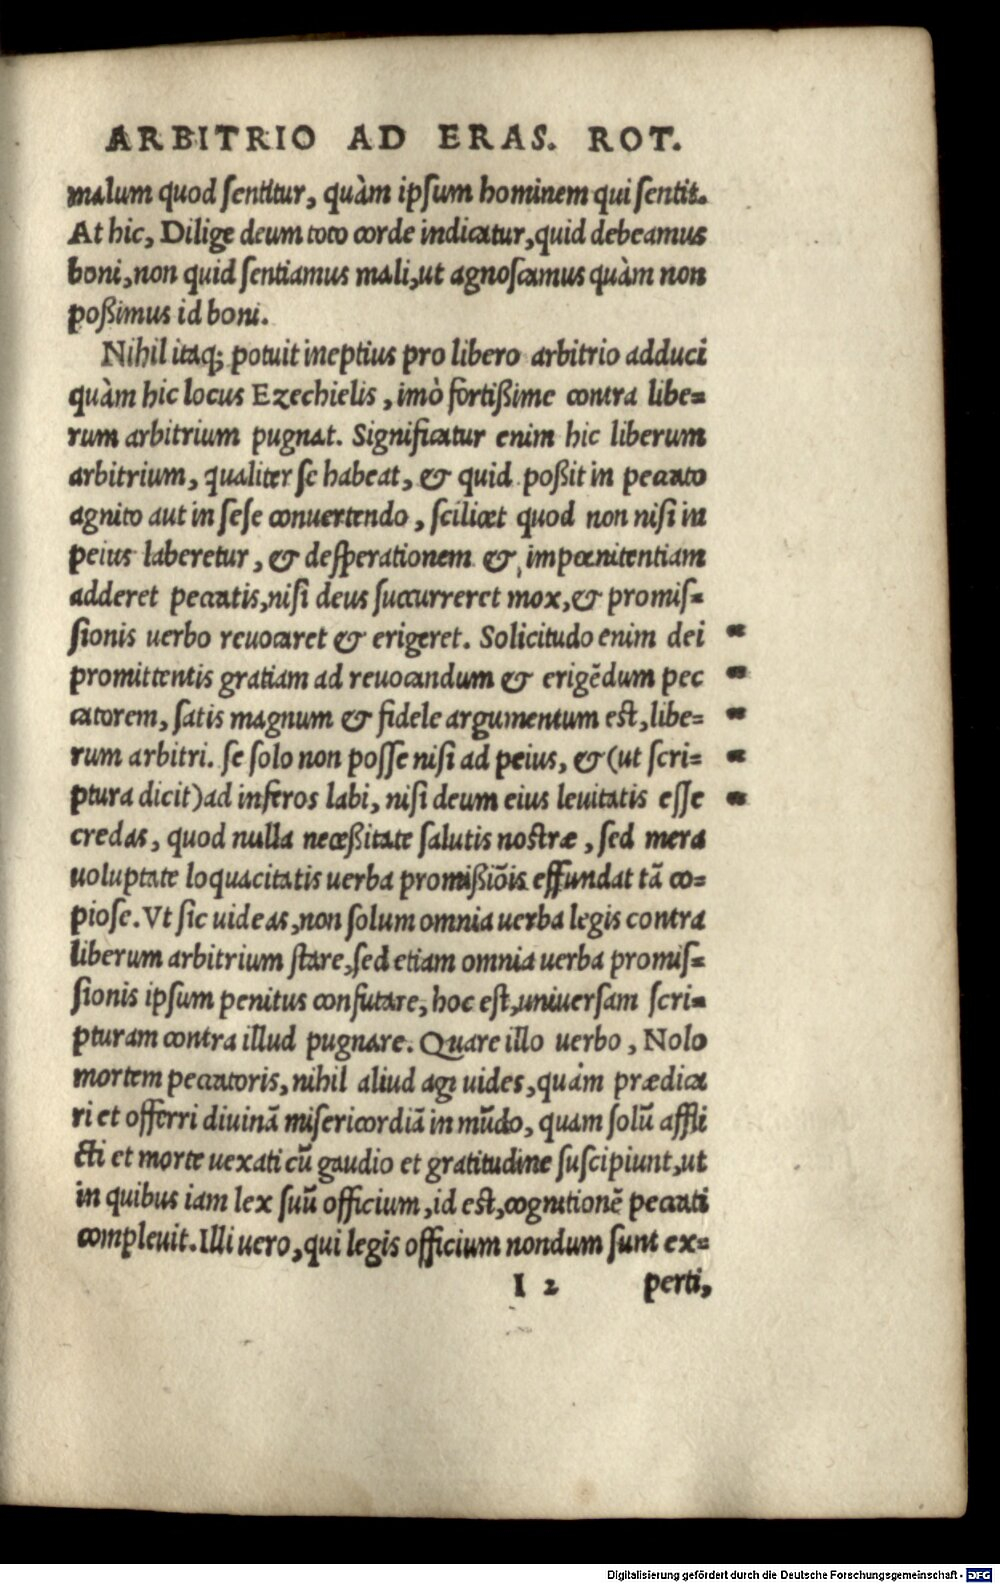 ARBITRIO AD ERAS. ROT.
malum quod sentitur, quàm ipsum hominem qui sentit.
At hic, Dilige deum toto corde indicatur, quid debeamus
boni, non quid sentiamus mali, ut agnoscamus quàm non
poßimus id boni.
Nihil itaq; potuit ineptius pro libero arbitrio adduci
quàm hic locus Ezechielis, imò fortißime contra libe=
rum arbitrium pugnat. Significatur enim hic liberum
arbitrium, qualiter se habeat, & quid poßit in peccato
agnito aut in sese conuertendo, scilicet quod non nisi in
peius laberetur, & desperationem & impœnitentiam
adderet peccatis, nisi deus succurreret mox, & promis=
sionis uerbo reuocaret & erigeret. Solicitudo enim dei
promittentis gratiam ad reuocandum & erigẽdum pec
catorem, satis magnum & fidele argumentum est, libe=
rum arbitri. se solo non posse nisi ad peius, & (ut scri=
ptura dicit) ad inferos labi, nisi deum eius leuitatis esse
credas, quod nulla neceßitate salutis nostræ, sed mera
uoluptate loquacitatis uerba promißiõis effundat tã co=
piose. Vt sic uideas, non solum omnia uerba legis contra
liberum arbitrium stare, sed etiam omnia uerba promis=
sionis ipsum penitus confutare, hoc est, uniuersam scri=
pturam contra illud pugnare. Quare illo uerbo, Nolo
mortem peccatoris, nihil aliud agi uides, quàm prædica
ri et offerri diuinã misericordiã in mũdo, quam solũ affli
cti et morte uexati cũ gaudio et gratitudine suscipiunt, ut
in quibus iam lex suũ officium, id est, cognitionẽ peccati
compleuit. Illi uero, qui legis officium nondum sunt ex=
I 2 perti,
Digitalisierung gefördert durch die Deutsche Forschungsgemeinschaft - DFG